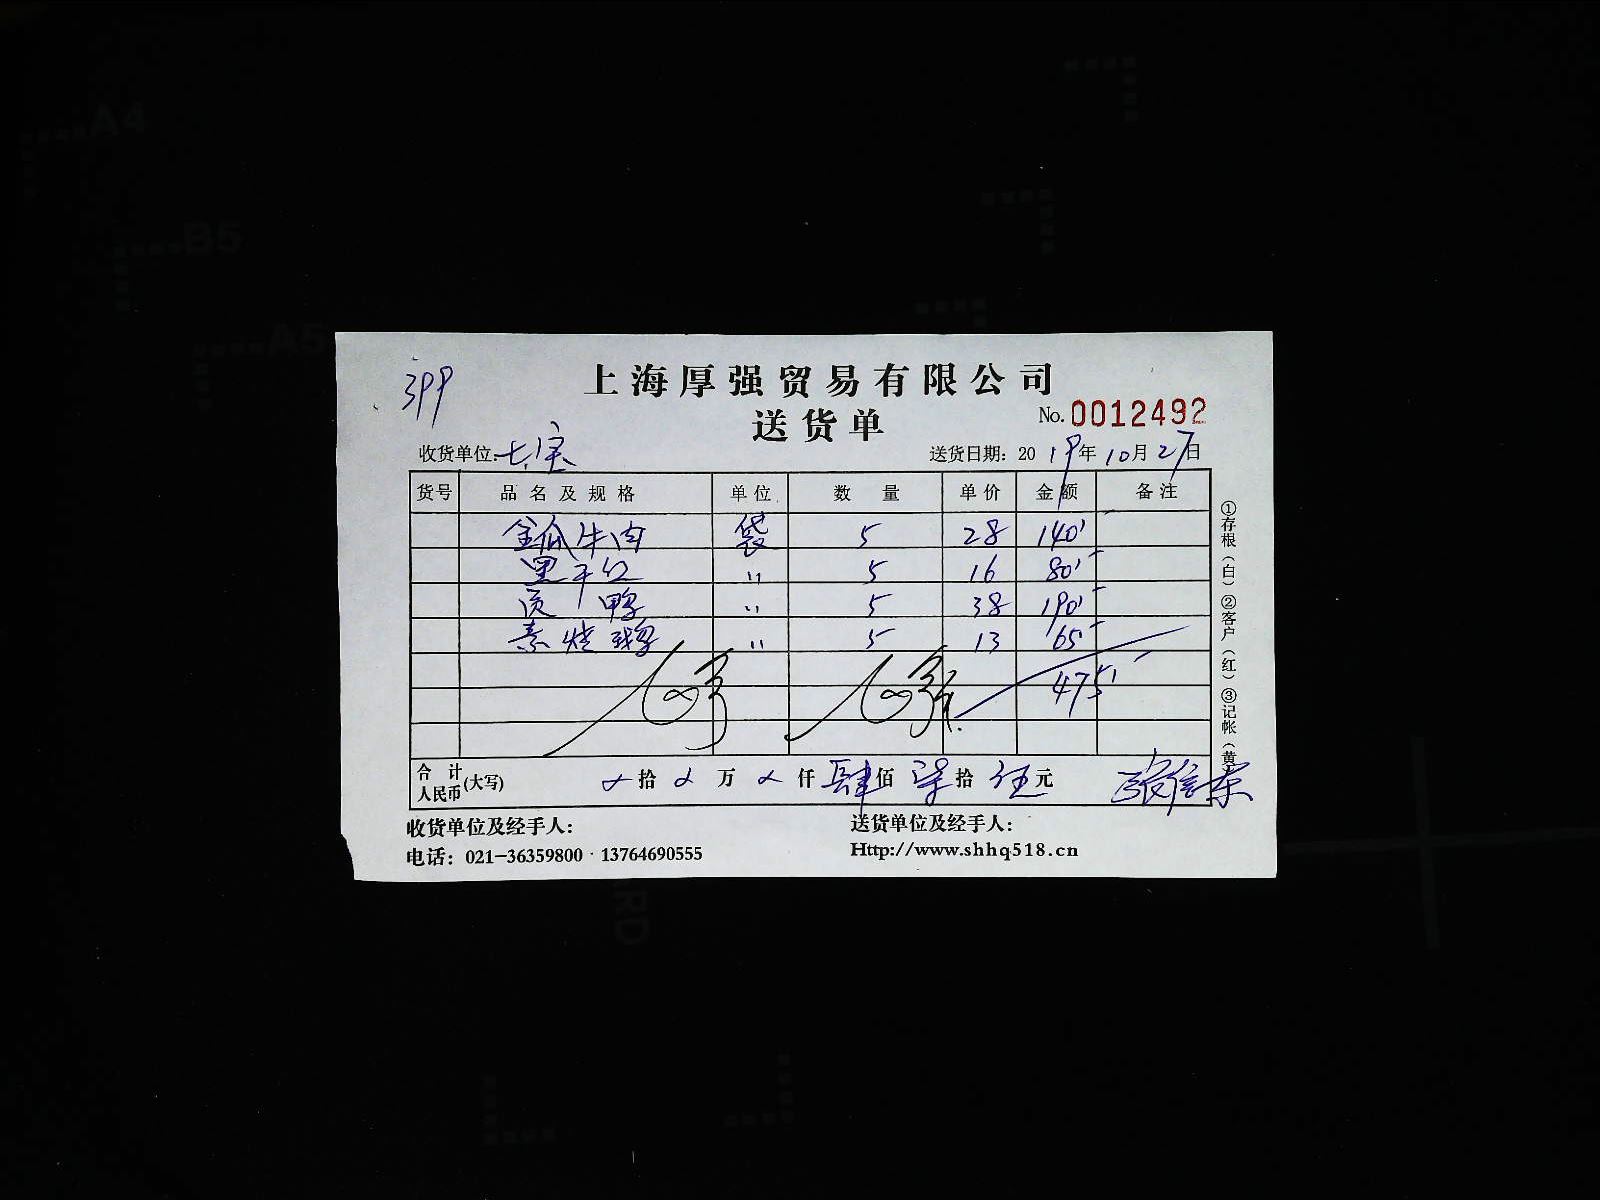 A4
B5
A5
399
上海厚强贸易有限公司
送货单
No. 0012492
收货单位: 七宝
送货日期: 2019年10月27日
货号 品名及规格 单位 数量 单价 金额 备注
金瓜牛肉 袋 5 28 140
黑千红 〃 5 16 80
鸭 〃 5 38 190
素烧鹅 〃 5 13 65
475
合计人民币(大写) 拾 万 仟 肆佰 柒拾 伍元
①存根(白) ②客户(红) ③记帐(黄
收货单位及经手人:
送货单位及经手人:
电话: 021-36359800 · 13764690555
Http://www.shhq518.cn